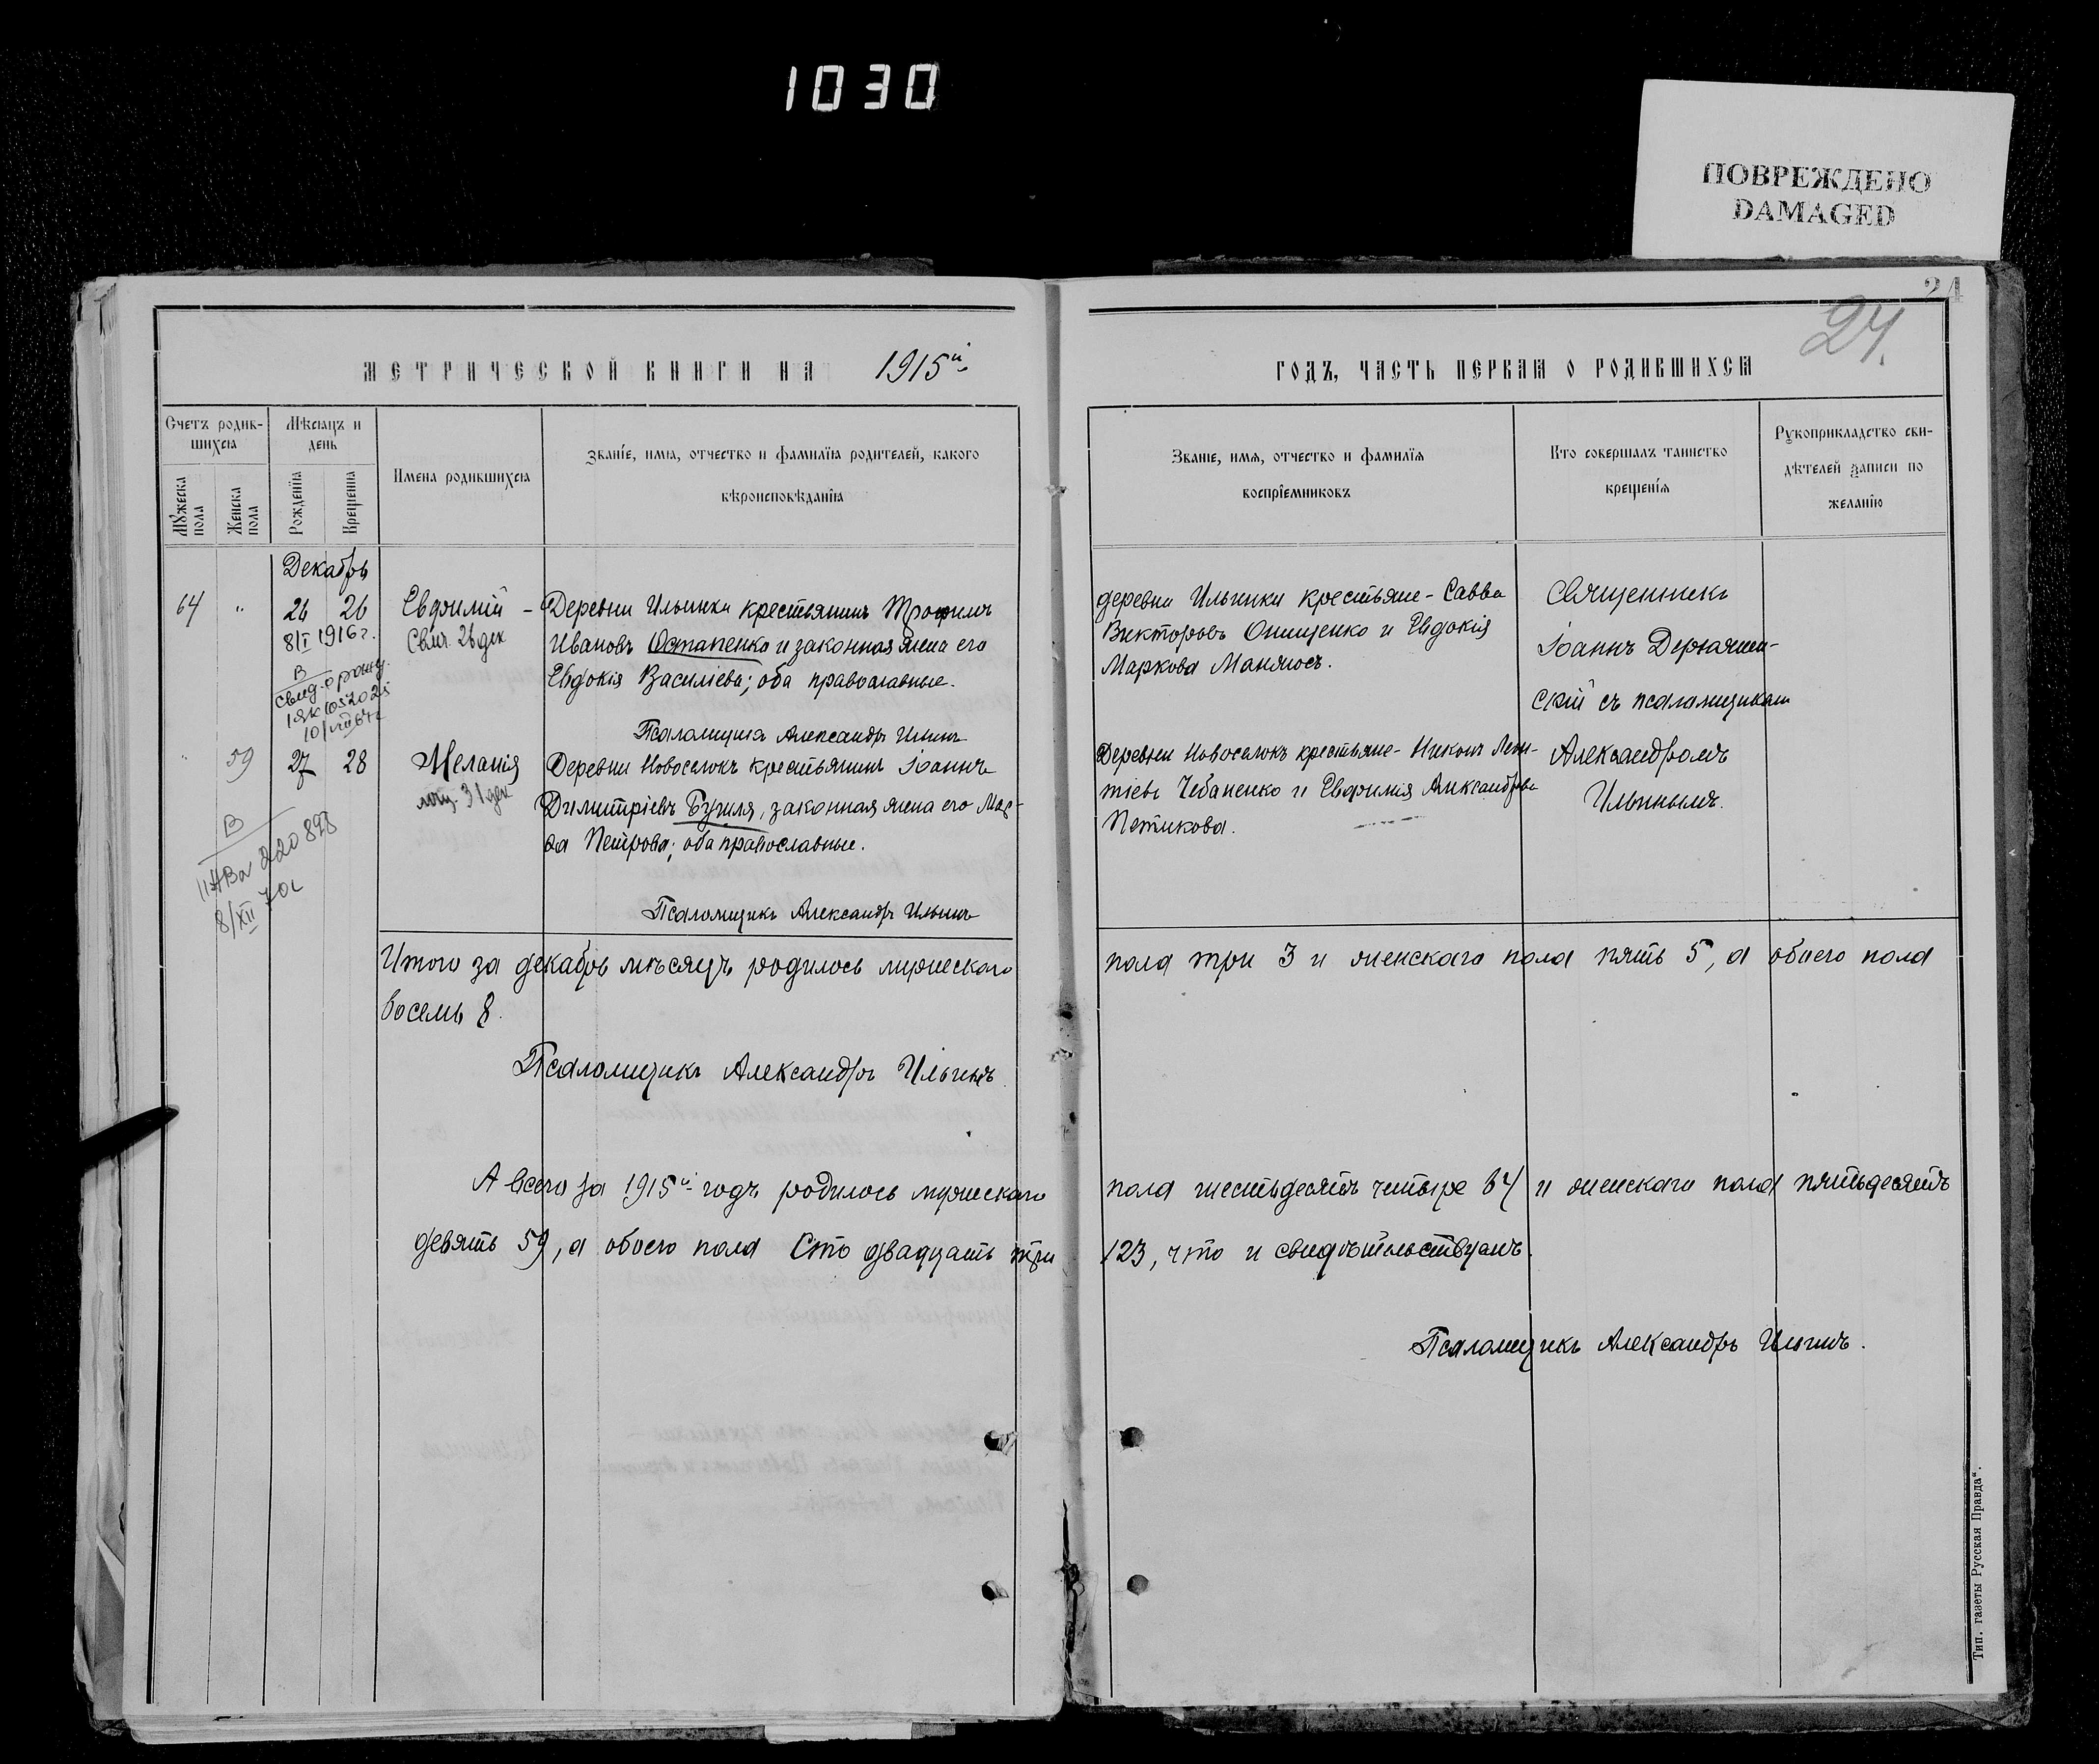 1030
ПОВРЕЖДЕНО
DAMAGED
24
24.
МЕТРИЧЕСКОЙ КНИГИ НА 1915й
ГОДЪ, ЧАСТЬ ПЕРВАЯ О РОДИВШИХСЯ
Счетъ родив-
шихся
Мѣсяцъ и
день
Имена родившихся
Званіе, имя, отчество и фамилія родителей, какого
вѣроисповѣданія
Мужеска
пола
Женска
пола
Рожденія
Крещенія
Званіе, имя, отчество и фамилія
воспріемниковъ
Кто совершалъ таинство
крещенія
Рукоприкладство сви-
дѣтелей записи по
желанію
Декабрь
64 " 26 26 Евфимій – Деревни Ильинки крестьянинъ Трофимъ
8/I 1916 г. 26 дек Ивановъ Остапенко и законная жена его
Евдокія Василіева; оба православные.
В
свид. о рожд.
10/VIII 64 г
Псаломщикъ Александръ Ильинъ
деревни Ильинки крестьяне – Савва
Викторовъ Онищенко и Евдокія
Маркова
Священникъ
Іоаннъ
скій съ псаломщикомъ
Александромъ
Ильинымъ.
" 59 27 28 Меланія Деревни Новоселокъ крестьянинъ Іоаннъ
31 дек Димитріевъ Бужиля, законная жена его
Петрова; оба православные.
В
220898
8/XII 70г
Псаломщикъ Александръ Ильинъ
Деревни Новоселокъ крестьяне – Никонъ Леон-
тіевъ Чебаненко и Евфимія Александрова
Петикова.
Итого за декабрь мѣсяцъ родилось мужескаго пола три 3 и женскаго пола пять 5, а обоего пола
восемь 8.
Псаломщикъ Александръ Ильинъ
А всего за 1915й годъ родилось мужескаго пола шестьдесятъ четыре 64 и женскаго пола пятьдесятъ
девять 59, а обоего пола Сто двадцать три 123, что и свидѣтельствуемъ.
Псаломщикъ Александръ Ильинъ.
Тип. газеты Русская Правда".